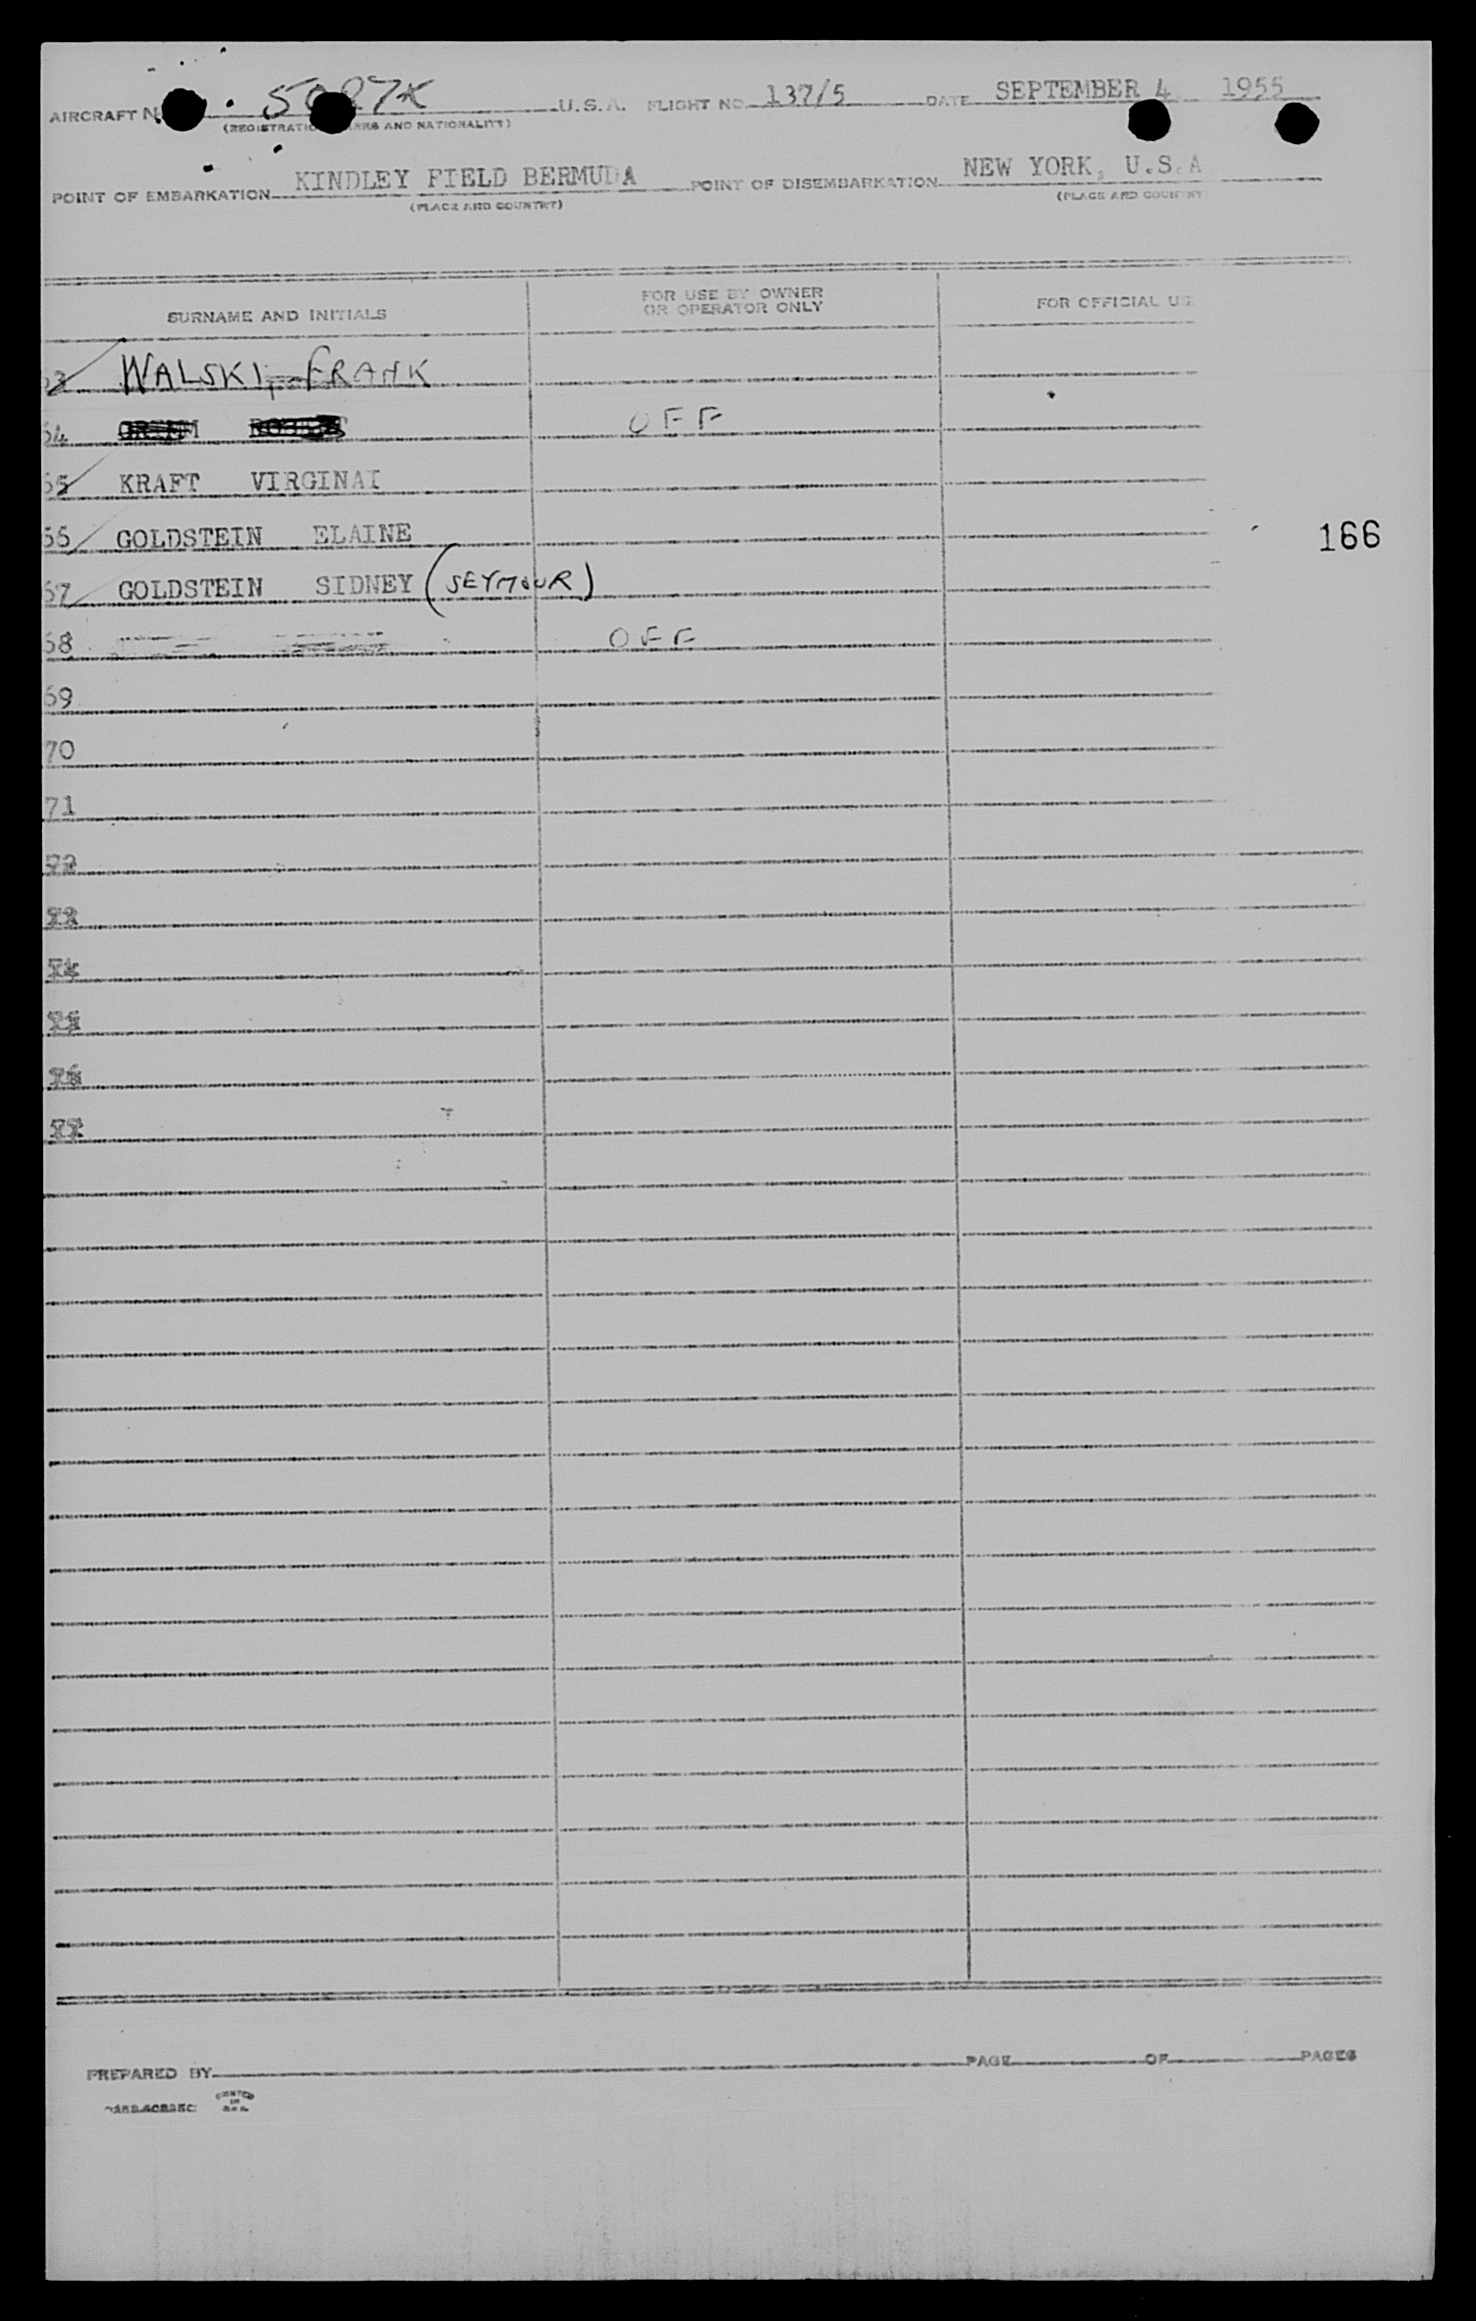 AIRCRAFT N 5087K U.S.A. FLIGHT NO. 137/5 DATE SEPTEMBER 4 1955
(REGISTRATION MARKS AND NATIONALITY)
POINT OF EMBARKATION KINDLEY FIELD BERMUDA POINT OF DISEMBARKATION NEW YORK, U.S.A
(PLACE AND COUNTRY) (PLACE AND COUNTRY
SURNAME AND INITIALS FOR USE BY OWNER OR OPERATOR ONLY FOR OFFICIAL US
63 WALSKI, FRANK
64 OFF
65 KRAFT VIRGINAI
66 GOLDSTEIN ELAINE
166
67 GOLDSTEIN SIDNEY (SEYMOUR)
68 OFF
69
70
71
72
73
74
75
76
77
PREPARED BY PAGE OF PAGES
PRINTED IN